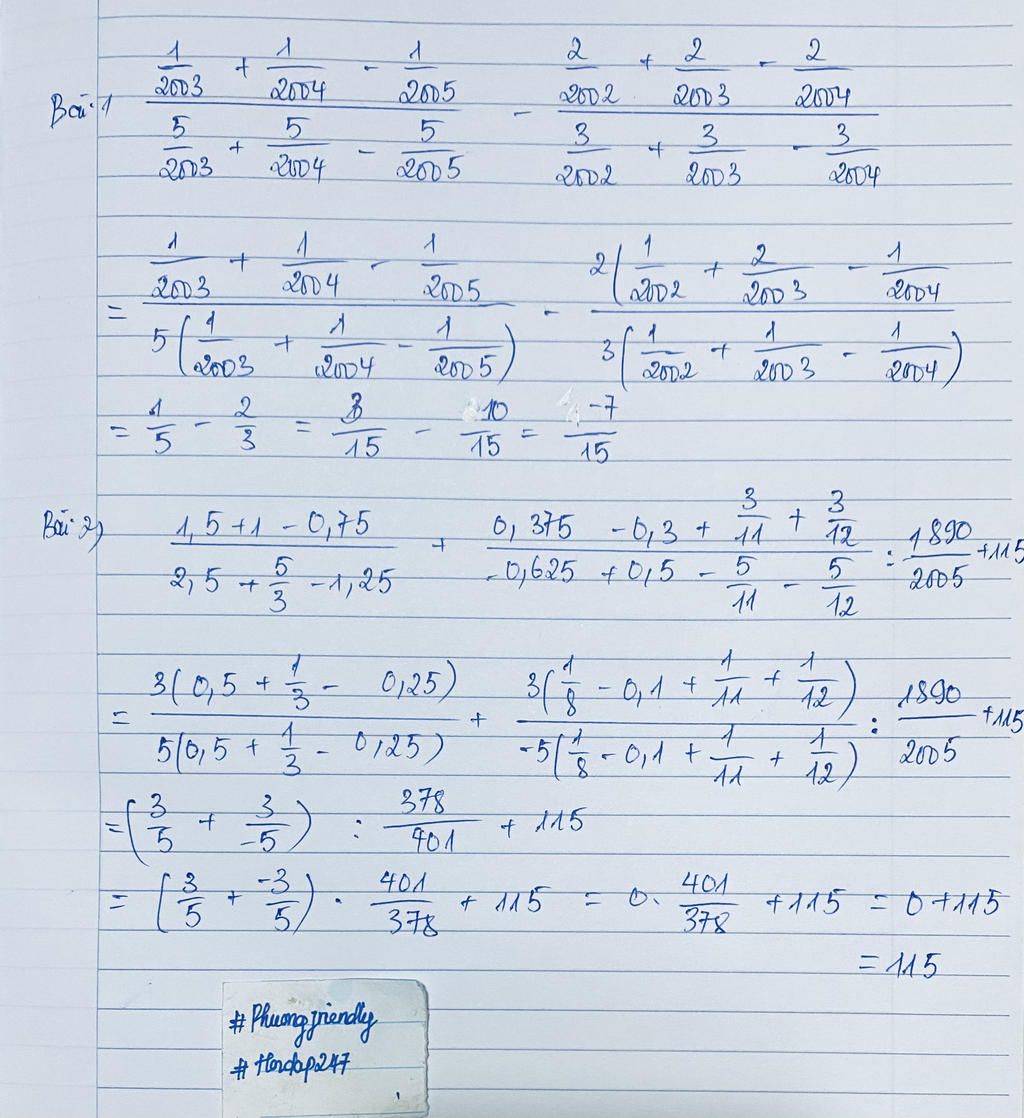 Bài 1 \frac{\frac{1}{2003} + \frac{1}{2004} - \frac{1}{2005}}{\frac{5}{2003} + \frac{5}{2004} - \frac{5}{2005}} - \frac{\frac{2}{2002} + \frac{2}{2003} - \frac{2}{2004}}{\frac{3}{2002} + \frac{3}{2003} - \frac{3}{2004}}
= \frac{\frac{1}{2003} + \frac{1}{2004} - \frac{1}{2005}}{5(\frac{1}{2003} + \frac{1}{2004} - \frac{1}{2005})} - \frac{2(\frac{1}{2002} + \frac{2}{2003} - \frac{1}{2004}}{3(\frac{1}{2002} + \frac{1}{2003} - \frac{1}{2004})}
= \frac{1}{5} - \frac{2}{3} = \frac{3}{15} - \frac{10}{15} = \frac{-7}{15}
Bài 2) \frac{1,5 + 1 - 0,75}{2,5 + \frac{5}{3} - 1,25} + \frac{0,375 - 0,3 + \frac{3}{11} + \frac{3}{12}}{-0,625 + 0,5 - \frac{5}{11} - \frac{5}{12}} : \frac{1890}{2005} + 115
= \frac{3(0,5 + \frac{1}{3} - 0,25)}{5(0,5 + \frac{1}{3} - 0,25)} + \frac{3(\frac{1}{8} - 0,1 + \frac{1}{11} + \frac{1}{12})}{-5(\frac{1}{8} - 0,1 + \frac{1}{11} + \frac{1}{12})} : \frac{1890}{2005} + 115
= (\frac{3}{5} + \frac{3}{-5}) : \frac{378}{401} + 115
= (\frac{3}{5} + \frac{-3}{5}) . \frac{401}{378} + 115 = 0. \frac{401}{378} + 115 = 0 + 115
= 115
# Phuongfriendly
# Hoidap247